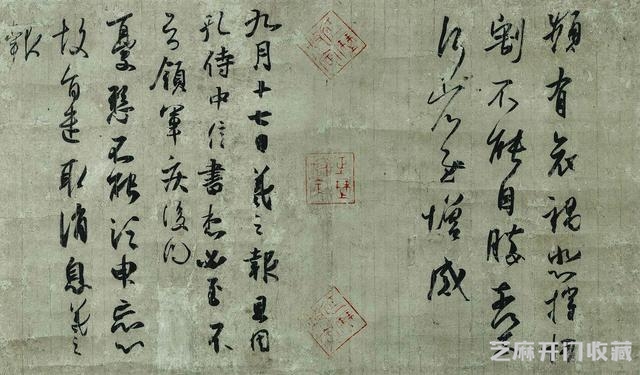 頻有哀禍悲摧切
割不能自勝奈何
奈何省慰增感
九月十七日羲之報且因
孔侍中信書想必至不
知領軍疾後問
憂懸不能須臾忘心
故旨遣取消息羲之
報
芝麻开门收藏